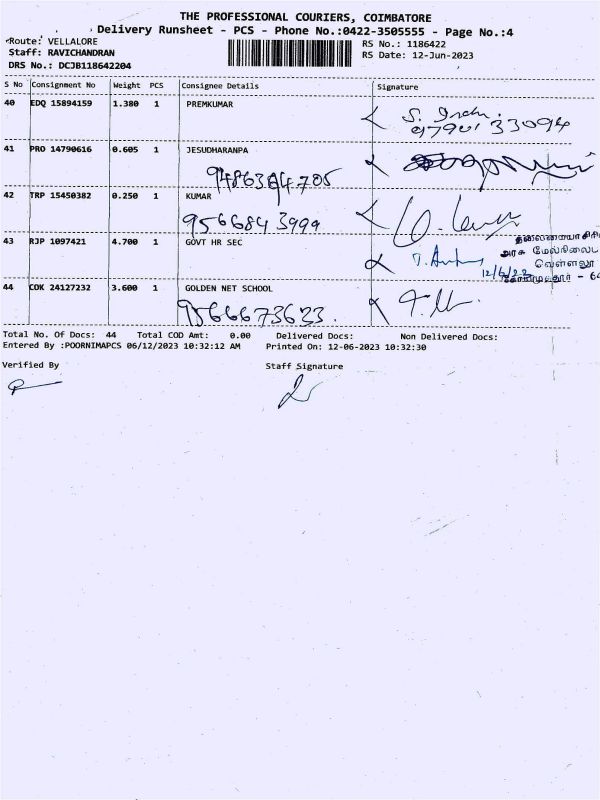 THE PROFESSIONAL COURIERS, COIMBATORE
Delivery Runsheet - PCS - Phone No.:0422-3505555 - Page No.:4
Route: VELLALORE
RS No.: 1186422
Staff: RAVICHANDRAN
RS Date: 12-Jun-2023
DRS No.: DCJB118642204
S No Consignment No Weight PCS Consignee Details Signature
40 EDQ 15894159 1.380 1 PREMKUMAR
9790133094
41 PRO 14790616 0.605 1 JESUDHARANPA
9486384705
42 TRP 15450382 0.250 1 KUMAR
9566843999
43 RJP 1097421 4.700 1 GOVT HR SEC
அரசு மேல்நிலைப
வெள்ளலூ
44 COK 24127232 3.600 1 GOLDEN NET SCHOOL
9566673623.
Total No. Of Docs: 44 Total COD Amt: 0.00 Delivered Docs: Non Delivered Docs:
Entered By :POORNIMAPCS 06/12/2023 10:32:12 AM Printed On: 12-06-2023 10:32:30
Verified By Staff Signature